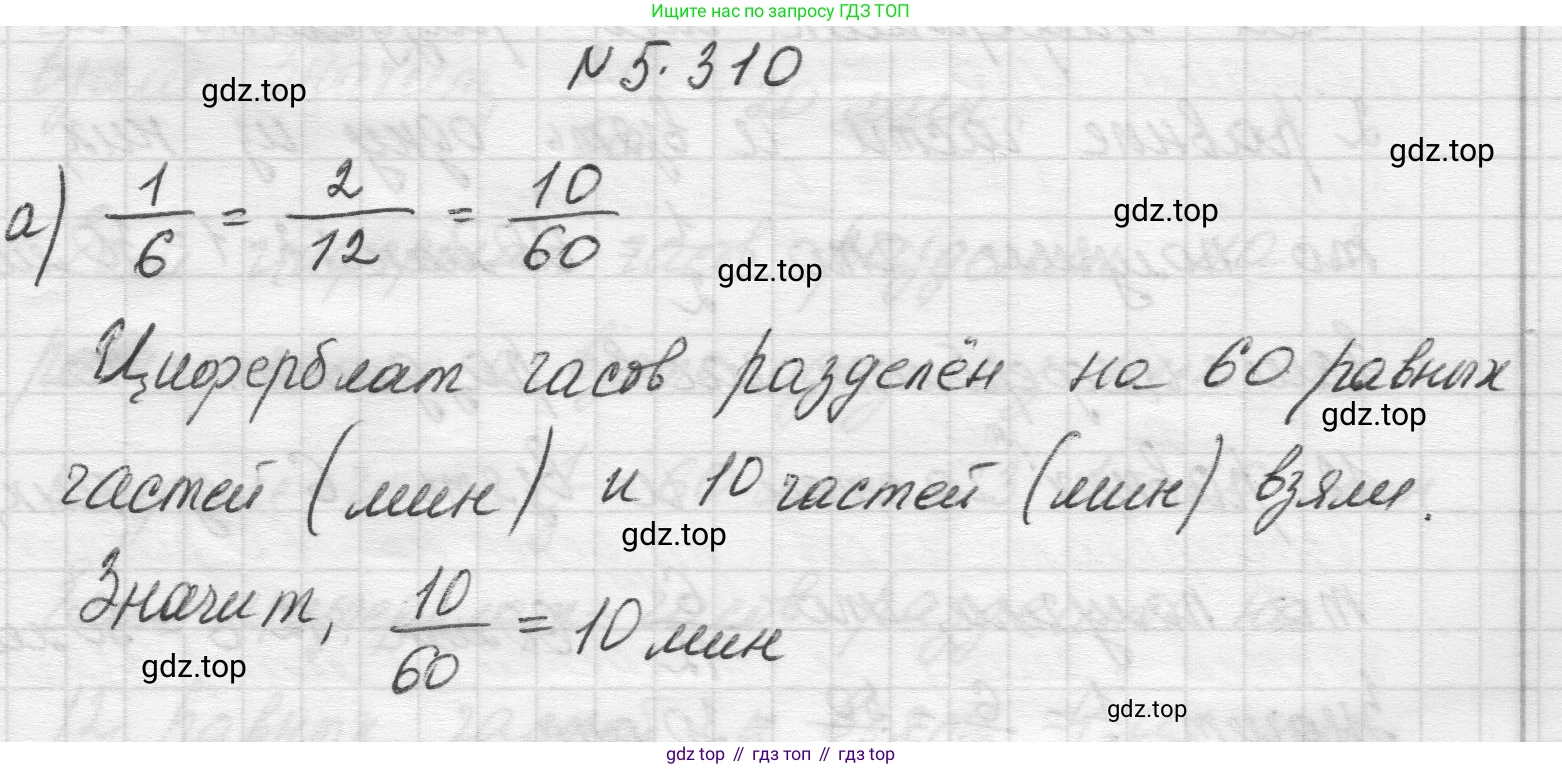 Ищите нас по запросу ГДЗ ТОП
N 5.310
gdz.top
gdz.top
gdz.top
а) 1/6 = 2/12 = 10/60
gdz.top
Циферблат часов разделён на 60 равных
gdz.top
частей (мин) и 10 частей (мин) взяли.
gdz.top
Значит, 10/60 = 10 мин
gdz.top
gdz.top
gdz top // гдз топ // гдз top